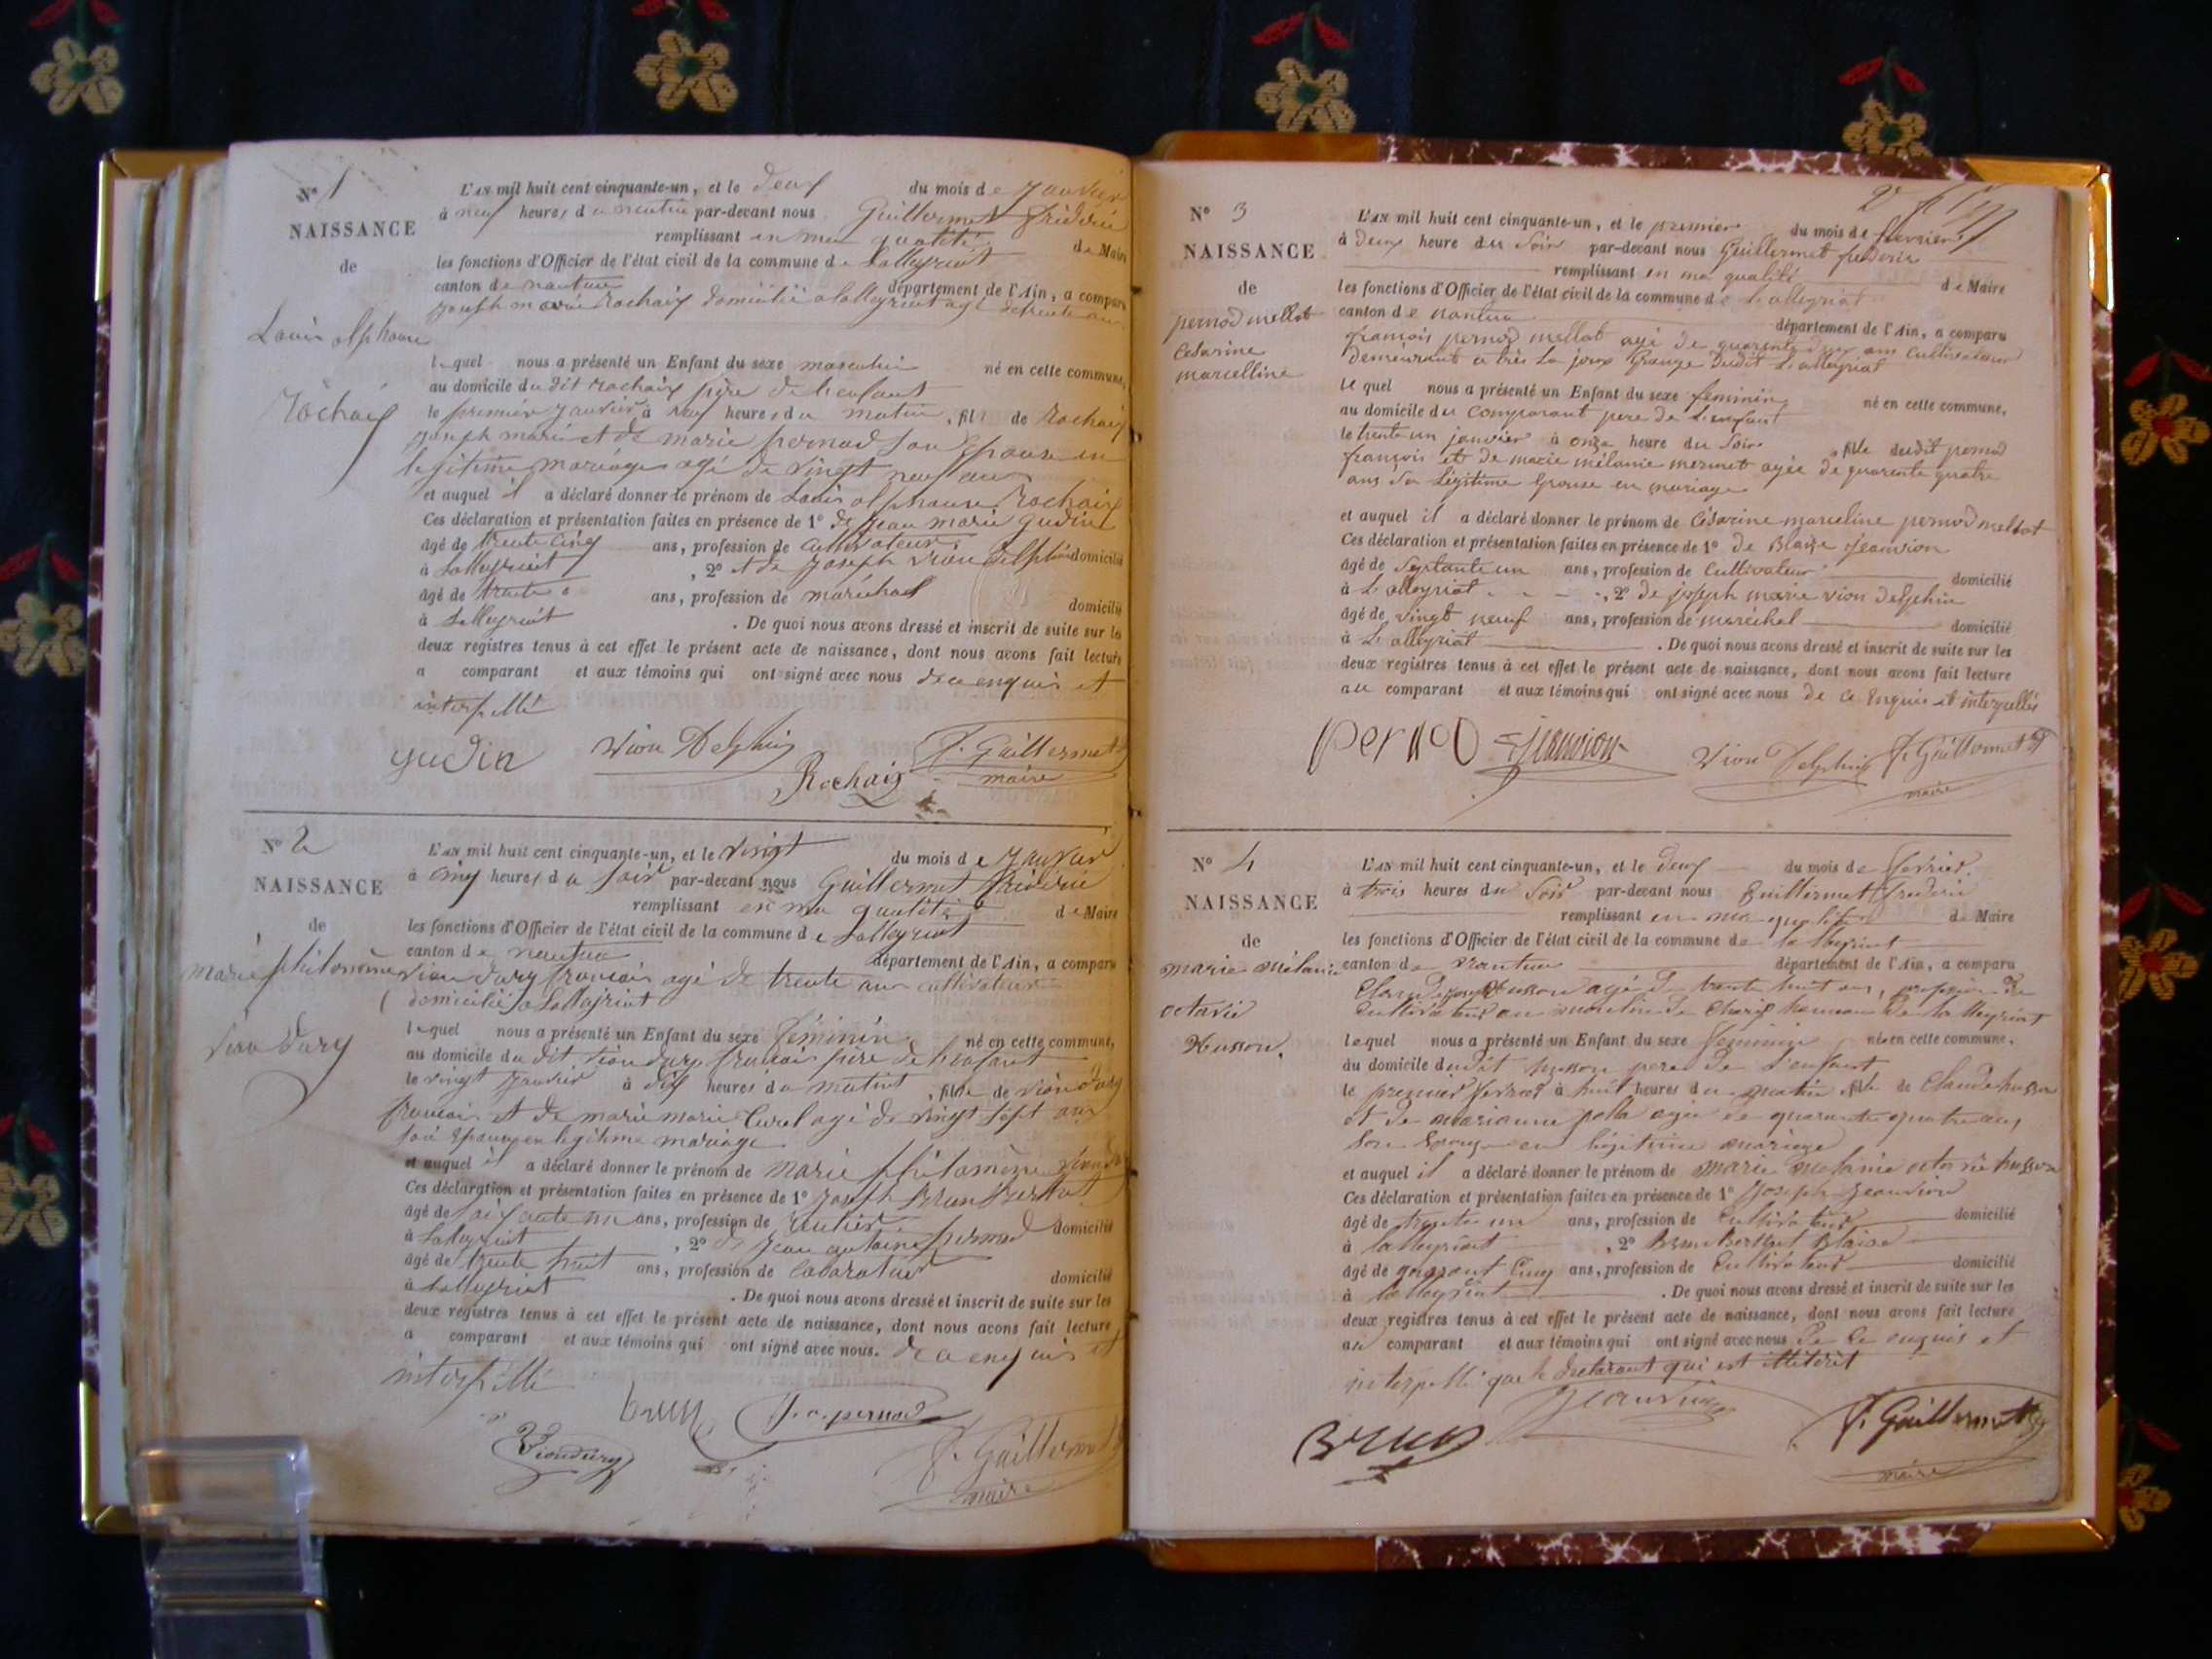 N° 1
NAISSANCE
de
Louis alphonse
Rochaix
L'AN mil huit cent cinquante-un, et le deux du mois de Janvier
à neuf heures du matin par-devant nous Guillermet frédéric
remplissant en ma qualité de Maire
les fonctions d'Officier de l'état civil de la commune de Lalleyriat
canton de nantua département de l'Ain, a comparu
joseph marie Rochaix domicilié a lalleyriat agé de trente ans
lequel nous a présenté un Enfant du sexe masculin né en cette commune,
au domicile du dit rochaix père de l'enfant
le premier janvier à neuf heures du matin, fils de Rochaix
joseph marie et de marie pernod son Epouse en
legitime mariage agé de vingt neuf ans
et auquel il a déclaré donner le prénom de Louis alphonse Rochaix
Ces déclaration et présentation faites en présence de 1° de jean marie gudin
âgé de trente cinq ans, profession de cultivateur domicilié
à Lalleyriat, 2° et de joseph vion Delphin
âgé de trente ans, profession de maréchal domicilié
à Lalleyriat. De quoi nous avons dressé et inscrit de suite sur les
deux registres tenus à cet effet le présent acte de naissance, dont nous avons fait lecture
a comparant et aux témoins qui ont signé avec nous de ce enquis et
interpellé
gudin Vion Delphin Rochaix f. Guillermet
maire
N° 2
NAISSANCE
de
marie philomène
vion dury
L'AN mil huit cent cinquante-un, et le vingt du mois de janvier
à cinq heures du soir par-devant nous Guillermet frédéric
remplissant en ma qualité de Maire
les fonctions d'Officier de l'état civil de la commune de Lalleyriat
canton de nantua département de l'Ain, a comparu
vion dury françois agé de trente ans cultivateur
domicilié à Lalleyriat
lequel nous a présenté un Enfant du sexe féminin né en cette commune,
au domicile du dit vion dury françois père de l'enfant
le vingt janvier à dix heures du matin, fille de vion dury
françois et de marie marie Curel agé de vingt sept ans
son épouse en legitime mariage
et auquel il a déclaré donner le prénom de marie philomène vion
Ces déclaration et présentation faites en présence de 1° joseph Brun Berthet
âgé de soixante un ans, profession de domicilié
à Lalleyriat, 2° de jean antoine pernod
âgé de trente huit ans, profession de laborateur domicilié
à Lalleyriat. De quoi nous avons dressé et inscrit de suite sur les
deux registres tenus à cet effet le présent acte de naissance, dont nous avons fait lecture
a comparant et aux témoins qui ont signé avec nous. de ce enquis et
interpellé
brun J. a. pernod
Viondury f. Guillermet
maire
N° 3
NAISSANCE
de
pernod mellot
Césarine
marcelline
L'AN mil huit cent cinquante-un, et le premier du mois de fevrier
à deux heure du soir par-devant nous Guillermet frederic
remplissant en ma qualité de Maire
les fonctions d'Officier de l'état civil de la commune de Lalleyriat
canton de nantua département de l'Ain, a comparu
françois pernod mellot agé de quarente deux ans cultivateur
demeurant a très la joux Grange dudit Lalleyriat
lequel nous a présenté un Enfant du sexe feminin né en cette commune,
au domicile du comparant pere de l'enfant
le trente un janvier à onze heure du soir, fille dudit pernod
françois et de marie mélanie mermet agée de quarente quatre
ans sa légitime épouse en mariage
et auquel il a déclaré donner le prénom de Césarine marceline pernod mellot
Ces déclaration et présentation faites en présence de 1° de Blaise jeanvion
âgé de septante un ans, profession de Cultivateur domicilié
à Lalleyriat, 2° de joseph marie vion delphin
âgé de vingt neuf ans, profession de maréchal domicilié
à Lalleyriat. De quoi nous avons dressé et inscrit de suite sur les
deux registres tenus à cet effet le présent acte de naissance, dont nous avons fait lecture
au comparant et aux témoins qui ont signé avec nous de ce enquis et interpellés
pernod jeanvion Vion Delphin f. Guillermet
maire
N° 4
NAISSANCE
de
marie mélanie
octavie
Husson.
L'AN mil huit cent cinquante-un, et le deux du mois de fevrier.
à trois heures du soir par-devant nous Guillermet frederic
remplissant en ma qualité de Maire
les fonctions d'Officier de l'état civil de la commune de lalleyriat
canton de nantua département de l'Ain, a comparu
Claude husson agé de trente huit ans, profession de
cultivateur au moulin de Charix hameau de lalleyriat
lequel nous a présenté un Enfant du sexe feminin né en cette commune,
au domicile dudit husson pere de l'enfant
le premier fevrier à huit heures du matin, fille de Claude husson
et de marianne agée de quarante quatre ans
son Epouse en légitime mariage
et auquel il a déclaré donner le prénom de marie mélanie octavie husson
Ces déclaration et présentation faites en présence de 1° Joseph jeanvion
âgé de trente un ans, profession de cultivateur domicilié
à lalleyriat, 2° brun berthet Blaise
âgé de quarant cinq ans, profession de cultivateur domicilié
à lalleyriat. De quoi nous avons dressé et inscrit de suite sur les
deux registres tenus à cet effet le présent acte de naissance, dont nous avons fait lecture
au comparant et aux témoins qui ont signé avec nous de ce enquis et
interpellé que le declarant qui est illiteret
Brun Jeanvion f. Guillermet
maire